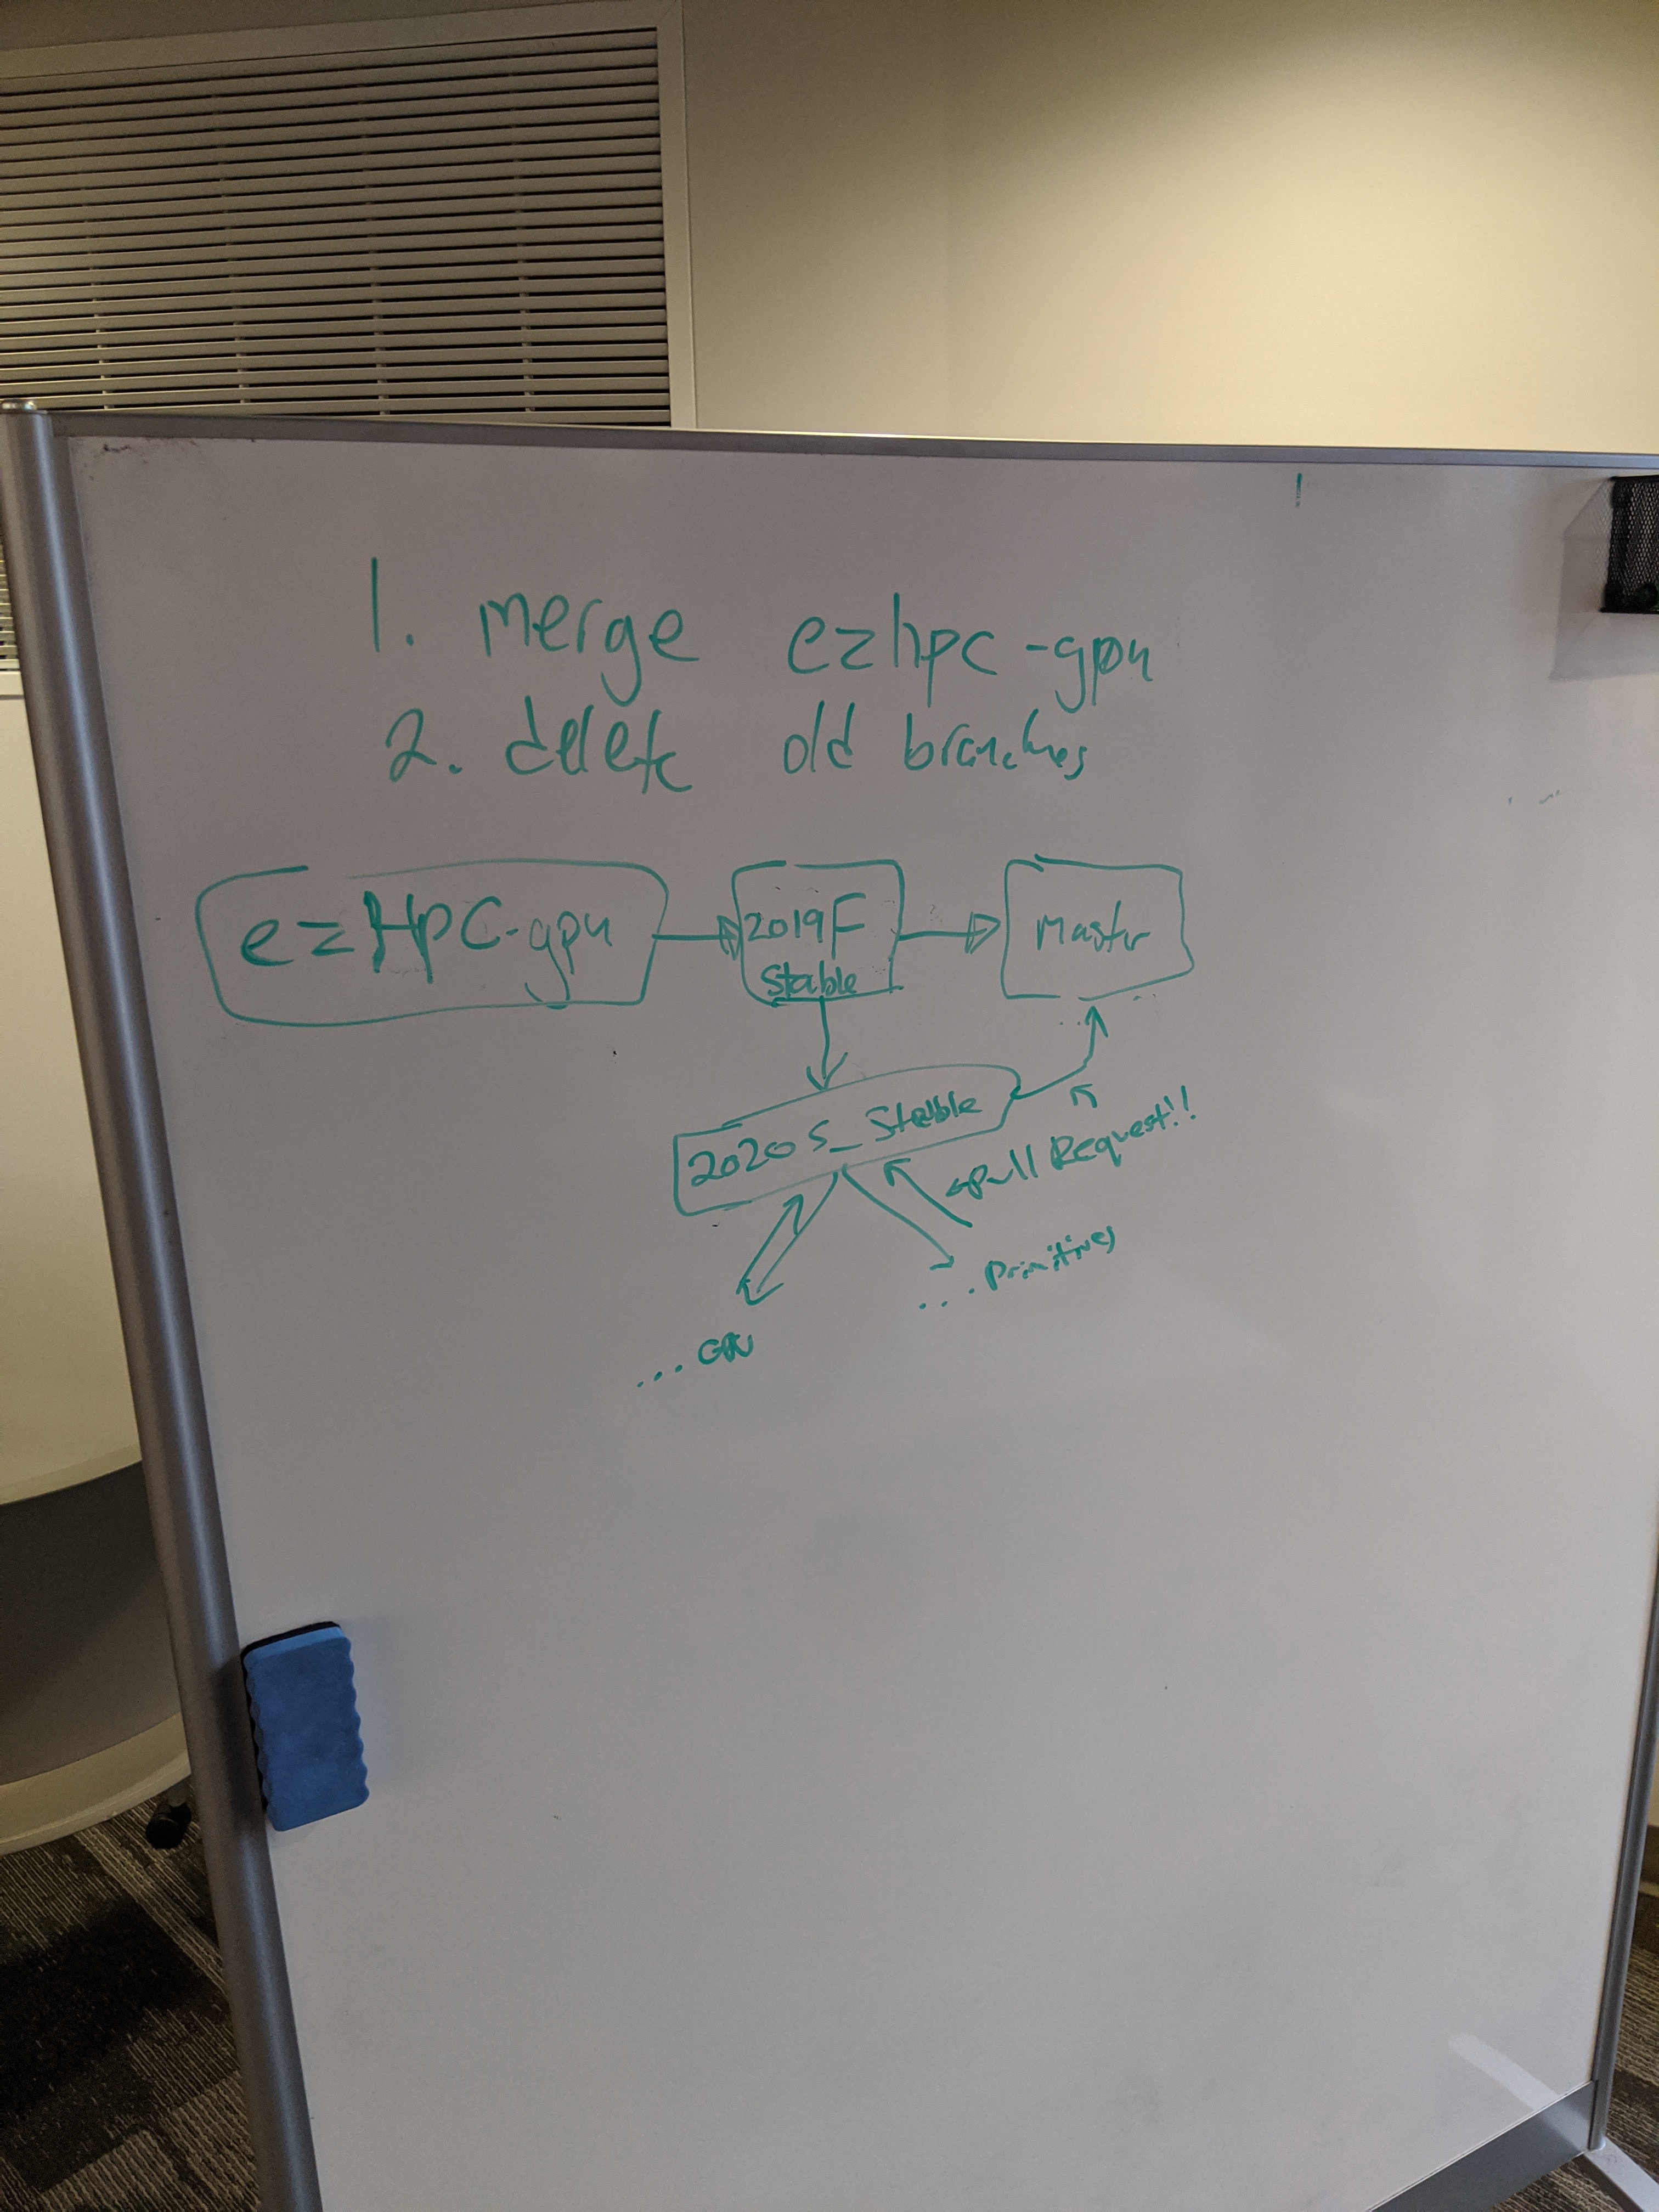 1. merge ezhpc-gpu
2. delete old branches
ezHPC-gpu
2019F
Stable
Master
2020S_Stable
Pull Request!!
... Primitives
... GPU